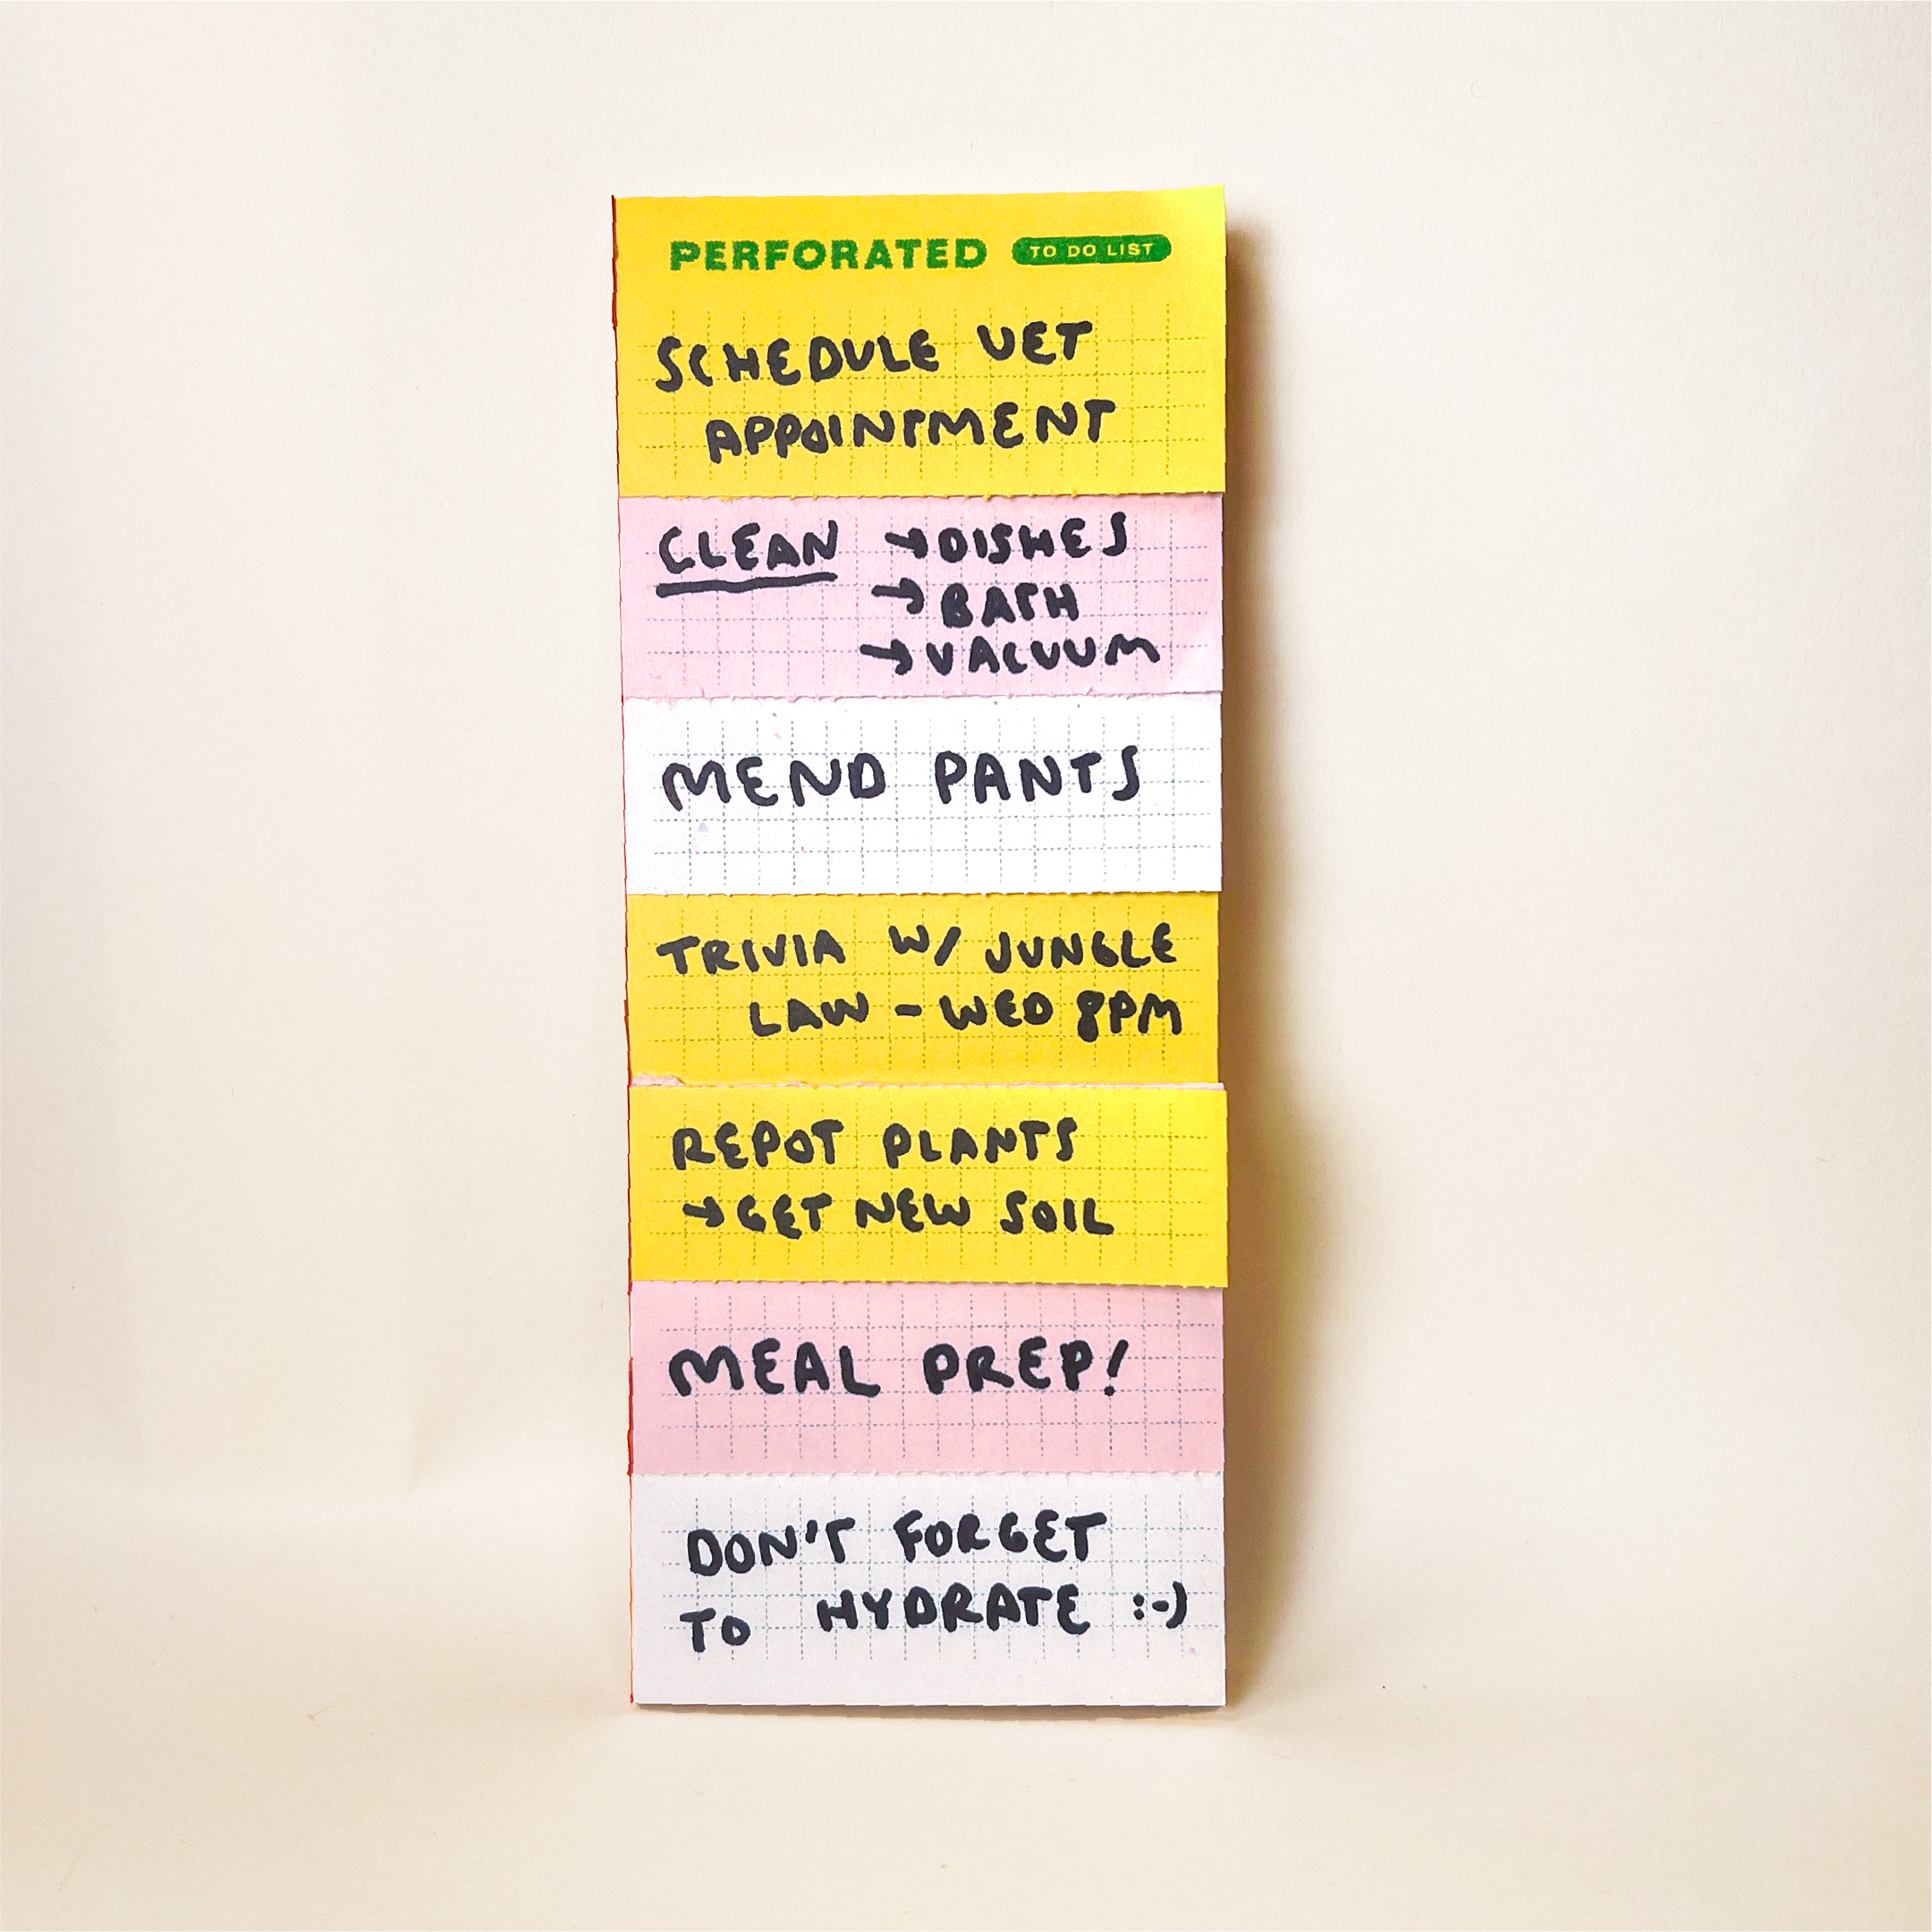 PERFORATED TO DO LIST
SCHEDULE VET
APPOINTMENT
CLEAN → DISHES
→ BATH
→ VACUUM
MEND PANTS
TRIVIA W/ JUNGLE
LAW - WED 8PM
REPOT PLANTS
→ GET NEW SOIL
MEAL PREP!
DON'T FORGET
TO HYDRATE :-)